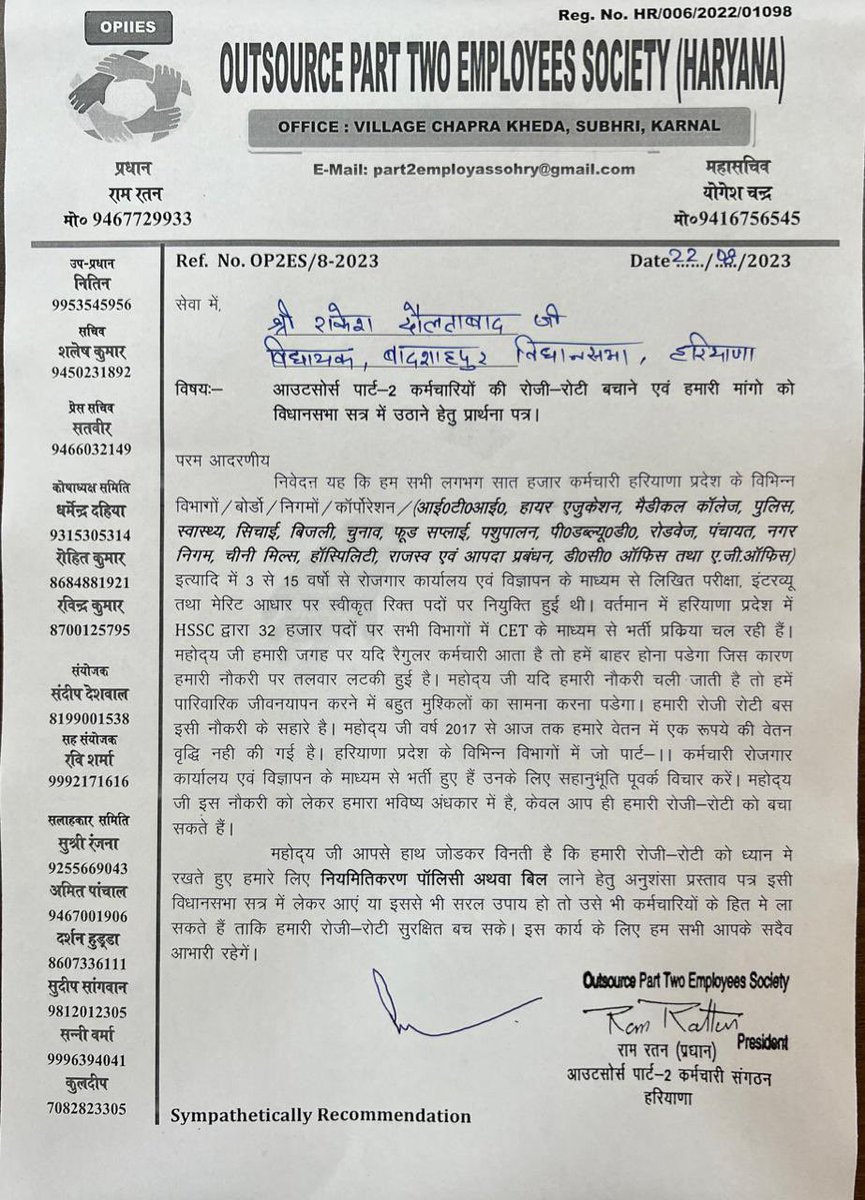 Reg. No. HR/006/2022/01098
OPIIES
OUTSOURCE PART TWO EMPLOYEES SOCIETY (HARYANA)
OFFICE : VILLAGE CHAPRA KHEDA, SUBHRI, KARNAL
E-Mail: part2employassohry@gmail.com
प्रधान
राम रतन
मो० 9467729933
महासचिव
योगेश चन्द्र
मो०9416756545
उप-प्रधान
नितिन
9953545956
सचिव
शलेष कुमार
9450231892
प्रेस सचिव
सतवीर
9466032149
कोषाध्यक्ष समिति
धर्मेन्द्र दहिया
9315305314
रोहित कुमार
8684881921
रविन्द्र कुमार
8700125795
संयोजक
संदीप देशवाल
8199001538
सह संयोजक
रवि शर्मा
9992171616
सलाहकार समिति
सुश्री रंजना
9255669043
अमित पांचाल
9467001906
दर्शन हुड्डा
8607336111
सुदीप सांगवान
9812012305
सन्नी वर्मा
9996394041
कुलदीप
7082823305
Ref. No. OP2ES/8-2023
Date 22/08/2023
सेवा में,
श्री राकेश दौलताबाद जी
विधायक, बादशाहपुर विधानसभा, हरियाणा
विषयः– आउटसोर्स पार्ट–2 कर्मचारियों की रोजी–रोटी बचाने एवं हमारी मांगो को
विधानसभा सत्र में उठाने हेतु प्रार्थना पत्र।
परम आदरणीय
निवेदन यह कि हम सभी लगभग सात हजार कर्मचारी हरियाणा प्रदेश के विभिन्न
विभागों/बोर्डो/निगमों/कॉर्पोरेशन/(आई०टी०आई०, हायर एजुकेशन, मैडीकल कॉलेज, पुलिस,
स्वास्थ्य, सिचाई, बिजली, चुनाव, फूड सप्लाई, पशुपालन, पी०डब्ल्यू०डी०, रोडवेज, पंचायत, नगर
निगम, चीनी मिल्स, हॉस्पिलिटी, राजस्व एवं आपदा प्रबंधन, डी०सी० ऑफिस तथा ए.जी.ऑफिस)
इत्यादि में 3 से 15 वर्षो से रोजगार कार्यालय एवं विज्ञापन के माध्यम से लिखित परीक्षा, इंटरव्यू
तथा मेरिट आधार पर स्वीकृत रिक्त पदों पर नियुक्ति हुई थी। वर्तमान में हरियाणा प्रदेश में
HSSC द्वारा 32 हजार पदों पर सभी विभागों में CET के माध्यम से भर्ती प्रकिया चल रही हैं।
महोद्य जी हमारी जगह पर यदि रैगुलर कर्मचारी आता है तो हमें बाहर होना पडेगा जिस कारण
हमारी नौकरी पर तलवार लटकी हुई है। महोद्य जी यदि हमारी नौकरी चली जाती है तो हमें
पारिवारिक जीवनयापन करने में बहुत मुश्किलों का सामना करना पडेगा। हमारी रोजी रोटी बस
इसी नौकरी के सहारे है। महोद्य जी वर्ष 2017 से आज तक हमारे वेतन में एक रूपये की वेतन
वृद्धि नही की गई है। हरियाणा प्रदेश के विभिन्न विभागों में जो पार्ट–।। कर्मचारी रोजगार
कार्यालय एवं विज्ञापन के माध्यम से भर्ती हुए हैं उनके लिए सहानुभूति पूवर्क विचार करें। महोद्य
जी इस नौकरी को लेकर हमारा भविष्य अंधकार में है, केवल आप ही हमारी रोजी–रोटी को बचा
सकते हैं।
महोद्य जी आपसे हाथ जोडकर विनती है कि हमारी रोजी–रोटी को ध्यान मे
रखते हुए हमारे लिए नियमितिकरण पॉलिसी अथवा बिल लाने हेतु अनुशंसा प्रस्ताव पत्र इसी
विधानसभा सत्र में लेकर आएं या इससे भी सरल उपाय हो तो उसे भी कर्मचारियों के हित मे ला
सकते हैं ताकि हमारी रोजी–रोटी सुरक्षित बच सके। इस कार्य के लिए हम सभी आपके सदैव
आभारी रहेगें।
Outsource Part Two Employees Society
Ram Rattan
President
राम रतन (प्रधान)
आउटसोर्स पार्ट–2 कर्मचारी संगठन
हरियाणा
Sympathetically Recommendation